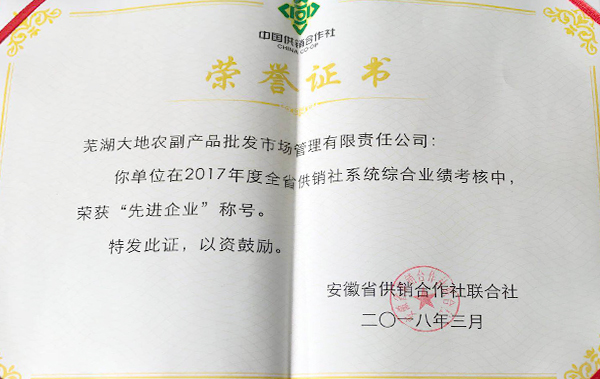 中国供销合作社
CHINA CO-OP
荣誉证书
芜湖大地农副产品批发市场管理有限责任公司：
你单位在2017年度全省供销社系统综合业绩考核中，
荣获“先进企业”称号。
特发此证，以资鼓励。
安徽省供销合作社联合社
二〇一八年三月